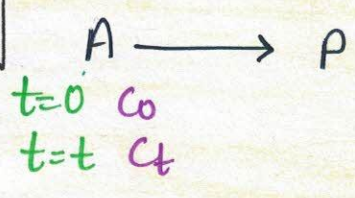 A → P
t=0 C₀
t=t Cₜ